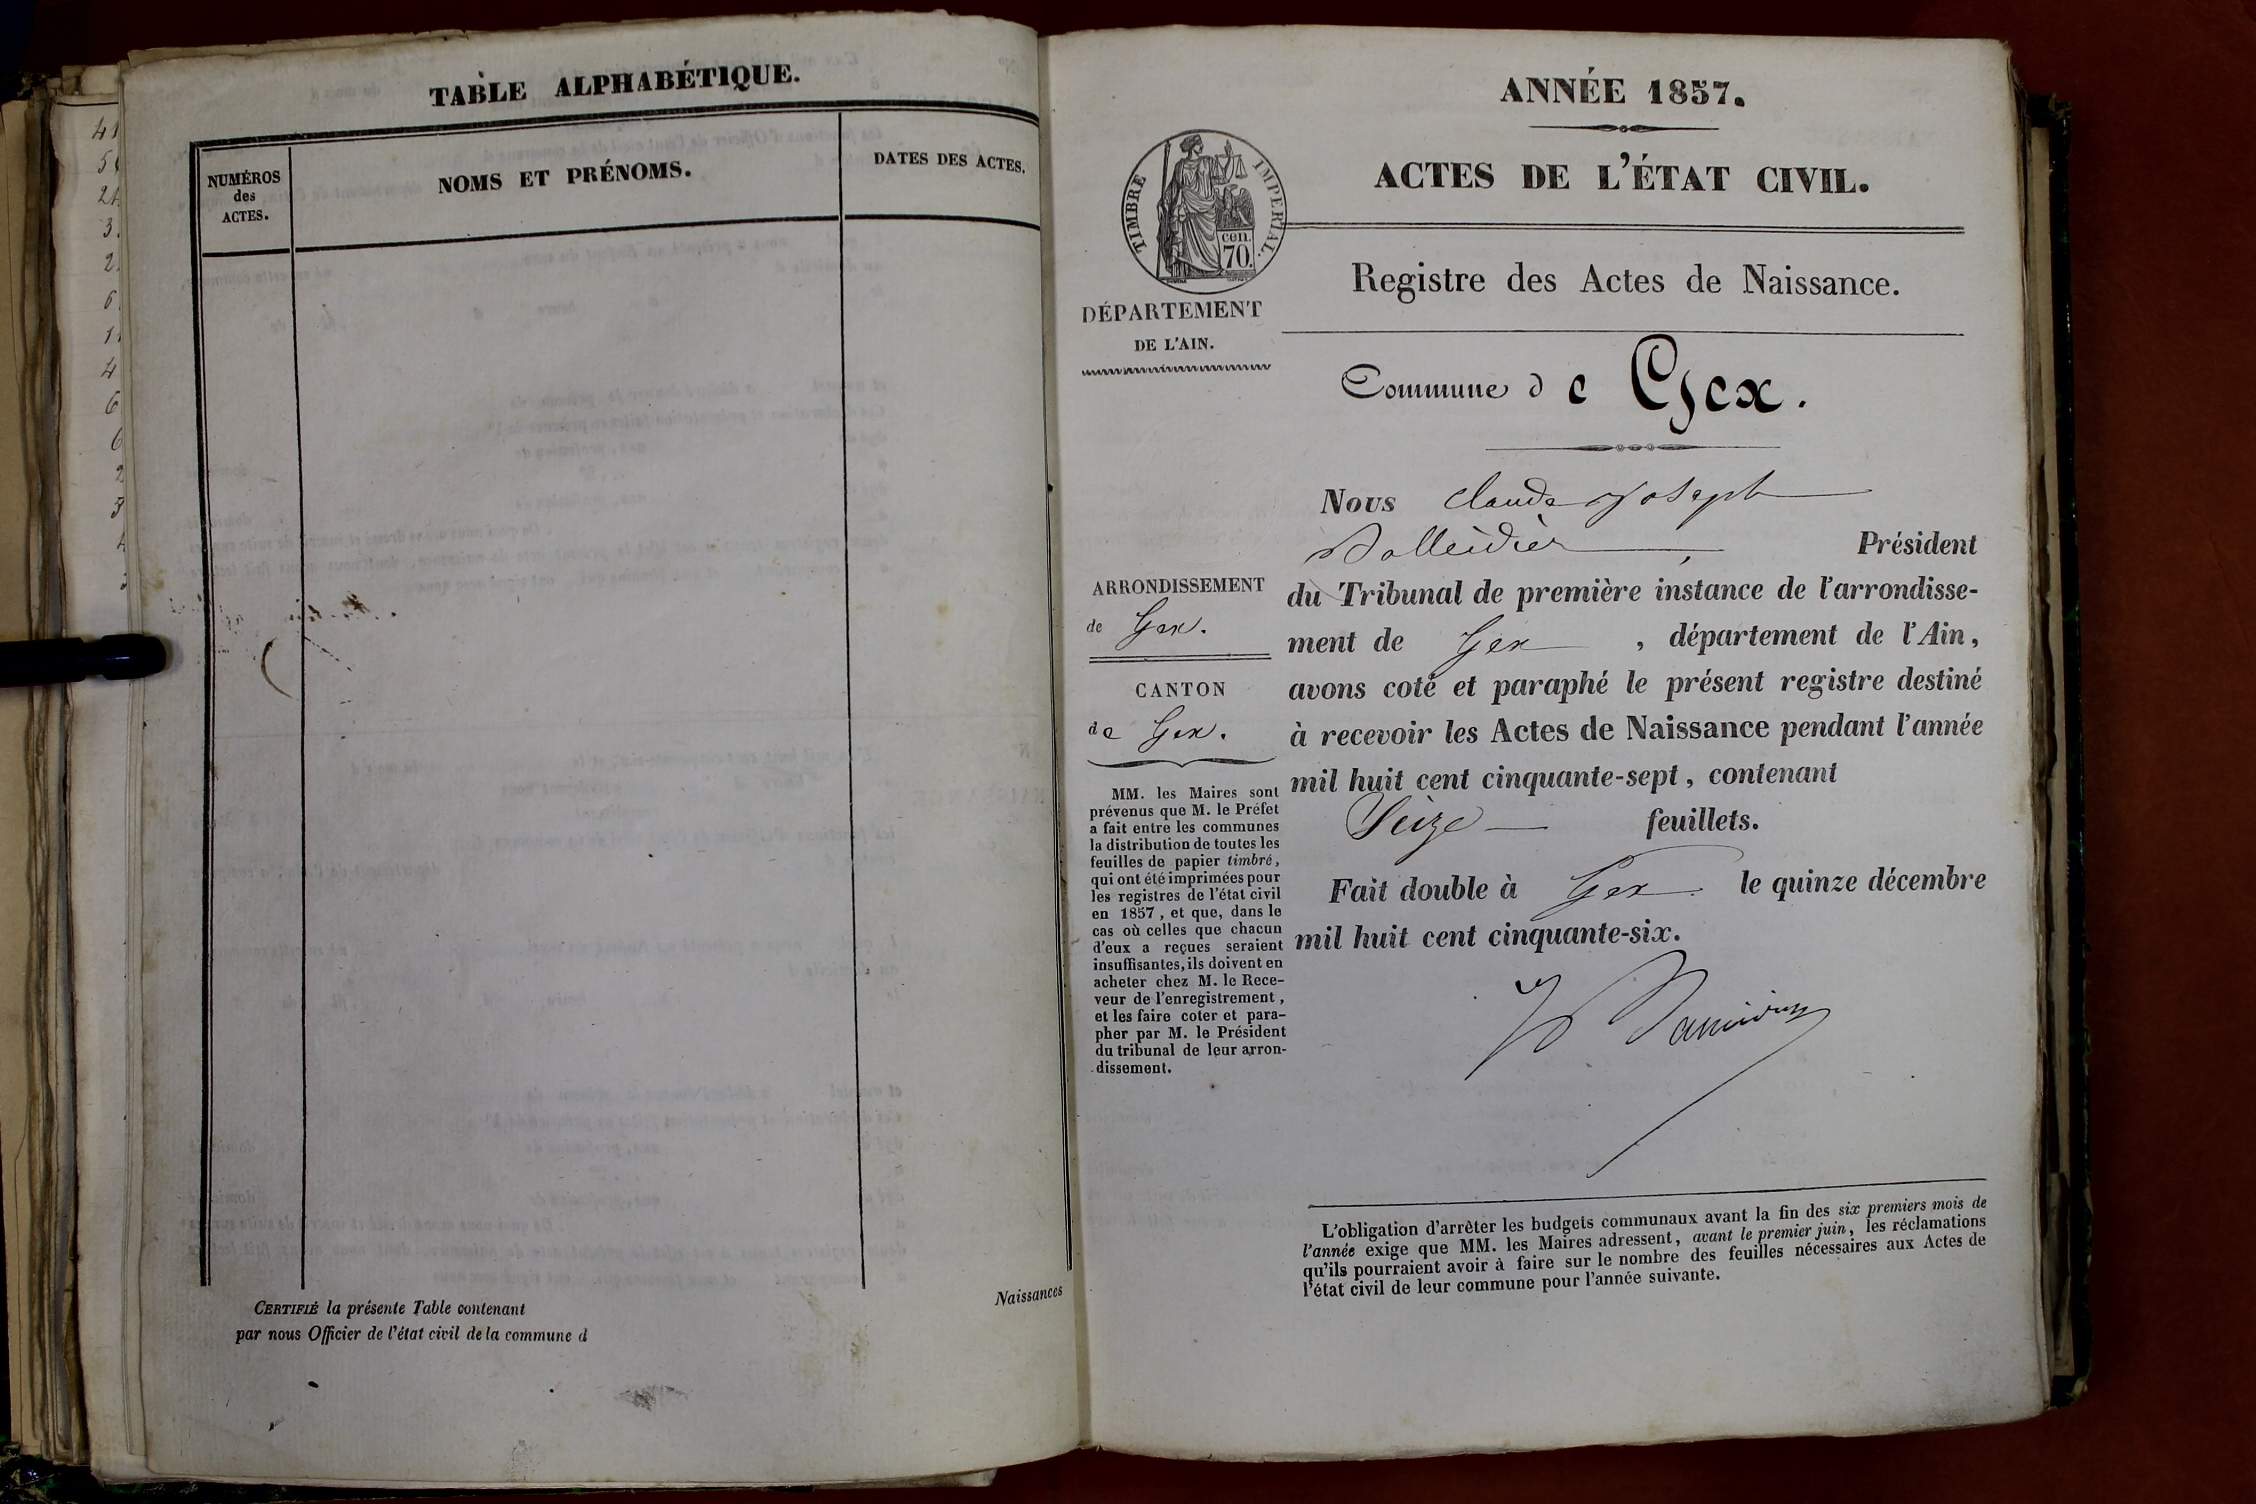 TABLE ALPHABÉTIQUE.
NUMÉROS
des
ACTES.
NOMS ET PRÉNOMS.
DATES DES ACTES.
CERTIFIÉ la présente Table contenant
par nous Officier de l'état civil de la commune d
Naissances
ANNÉE 1857.
ACTES DE L'ÉTAT CIVIL.
TIMBRE IMPERIAL.
cen.
70.
DÉPARTEMENT
DE L'AIN.
Registre des Actes de Naissance.
Commune de Gex.
ARRONDISSEMENT
de Gex.
CANTON
de Gex.
MM. les Maires sont
prévenus que M. le Préfet
a fait entre les communes
la distribution de toutes les
feuilles de papier timbré,
qui ont été imprimées pour
les registres de l'état civil
en 1857, et que, dans le
cas où celles que chacun
d'eux a reçues seraient
insuffisantes, ils doivent en
acheter chez M. le Rece-
veur de l'enregistrement,
et les faire coter et para-
pher par M. le Président
du tribunal de leur arron-
dissement.
Nous Claude Joseph
Président
du Tribunal de première instance de l'arrondisse-
ment de Gex, département de l'Ain,
avons coté et paraphé le présent registre destiné
à recevoir les Actes de Naissance pendant l'année
mil huit cent cinquante-sept, contenant
Seize feuillets.
Fait double à Gex le quinze décembre
mil huit cent cinquante-six.
L'obligation d'arrêter les budgets communaux avant la fin des six premiers mois de
l'année exige que MM. les Maires adressent, avant le premier juin, les réclamations
qu'ils pourraient avoir à faire sur le nombre des feuilles nécessaires aux Actes de
l'état civil de leur commune pour l'année suivante.